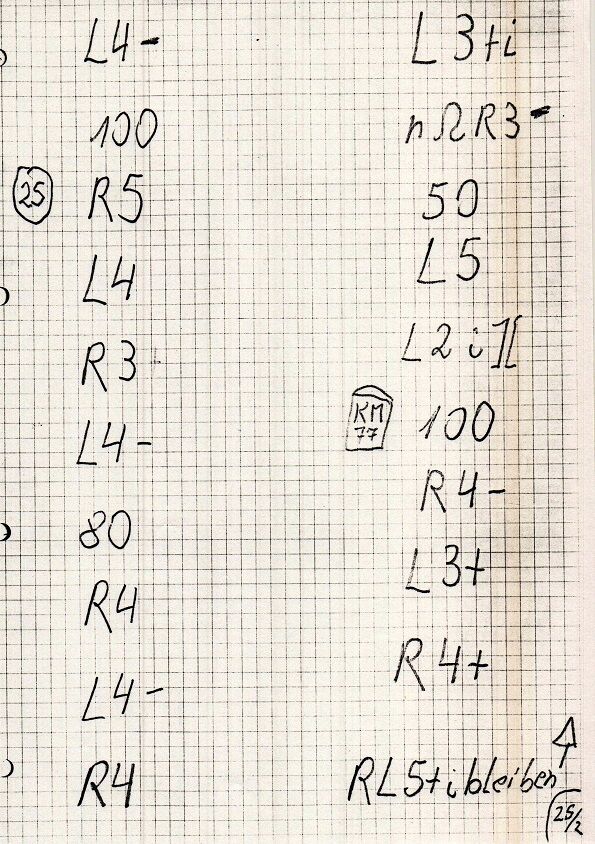 L4-
100
25
R5
L4
R3
L4-
80
R4
L4-
R4
L3+i
nΩR3-
50
L5
L2i][
KM
77
100
R4-
L3+
R4+
RL5+ibleiben
25/2